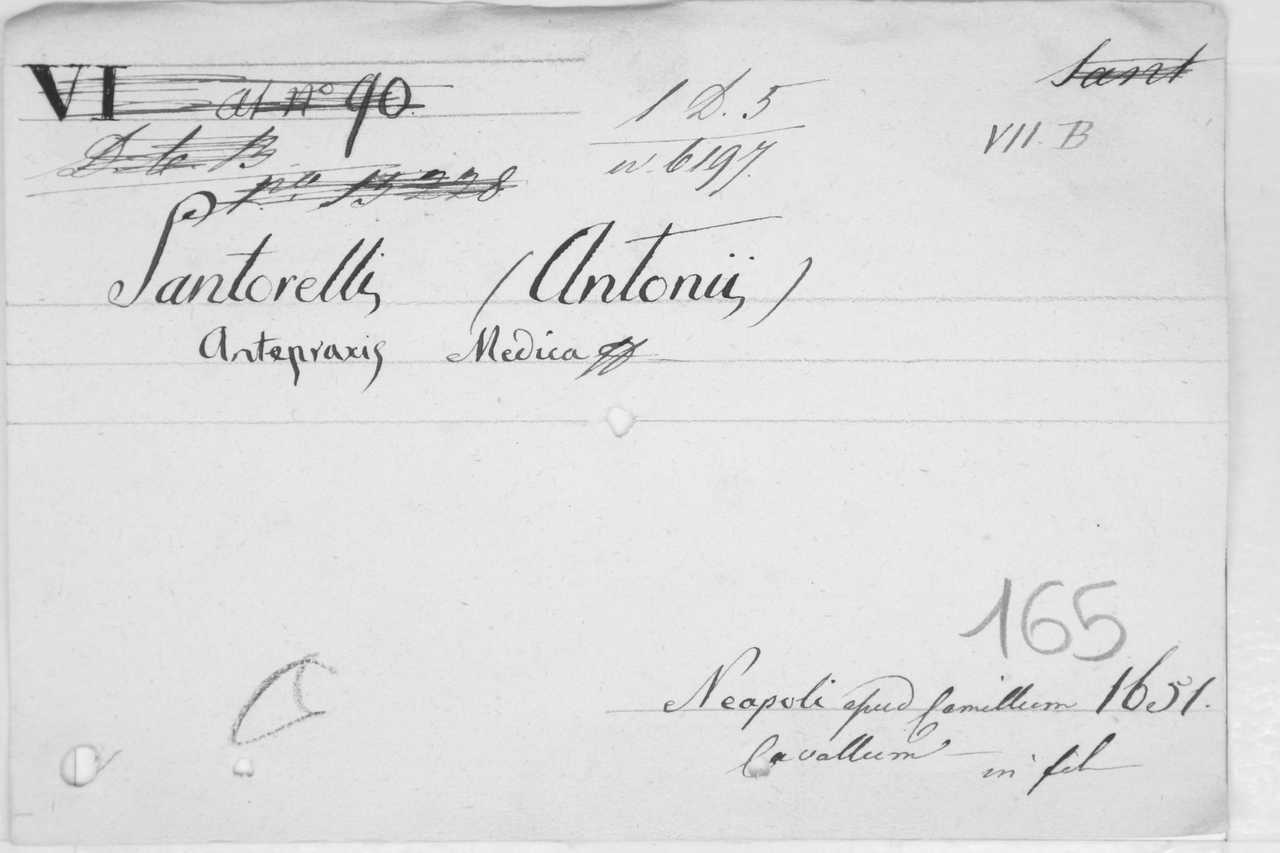 VI at no 90.
Sant
1 D. 5
VII. B
n. 6197.
no. 13228
Santorelli, (Antonii,)
Antepraxis Medica
165
Neapoli apud Camillum 1651.
Cavallum in fol